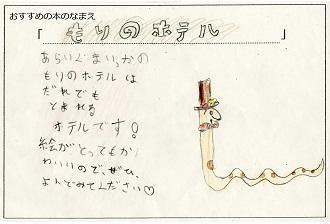 おすすめの本のなまえ
「もりのホテル」
あらいぐまいっかの
もりのホテルは
だれでも
とまれる
ホテルです！
絵がとってもか
わいいので、ぜひ、
よんでみてください♡